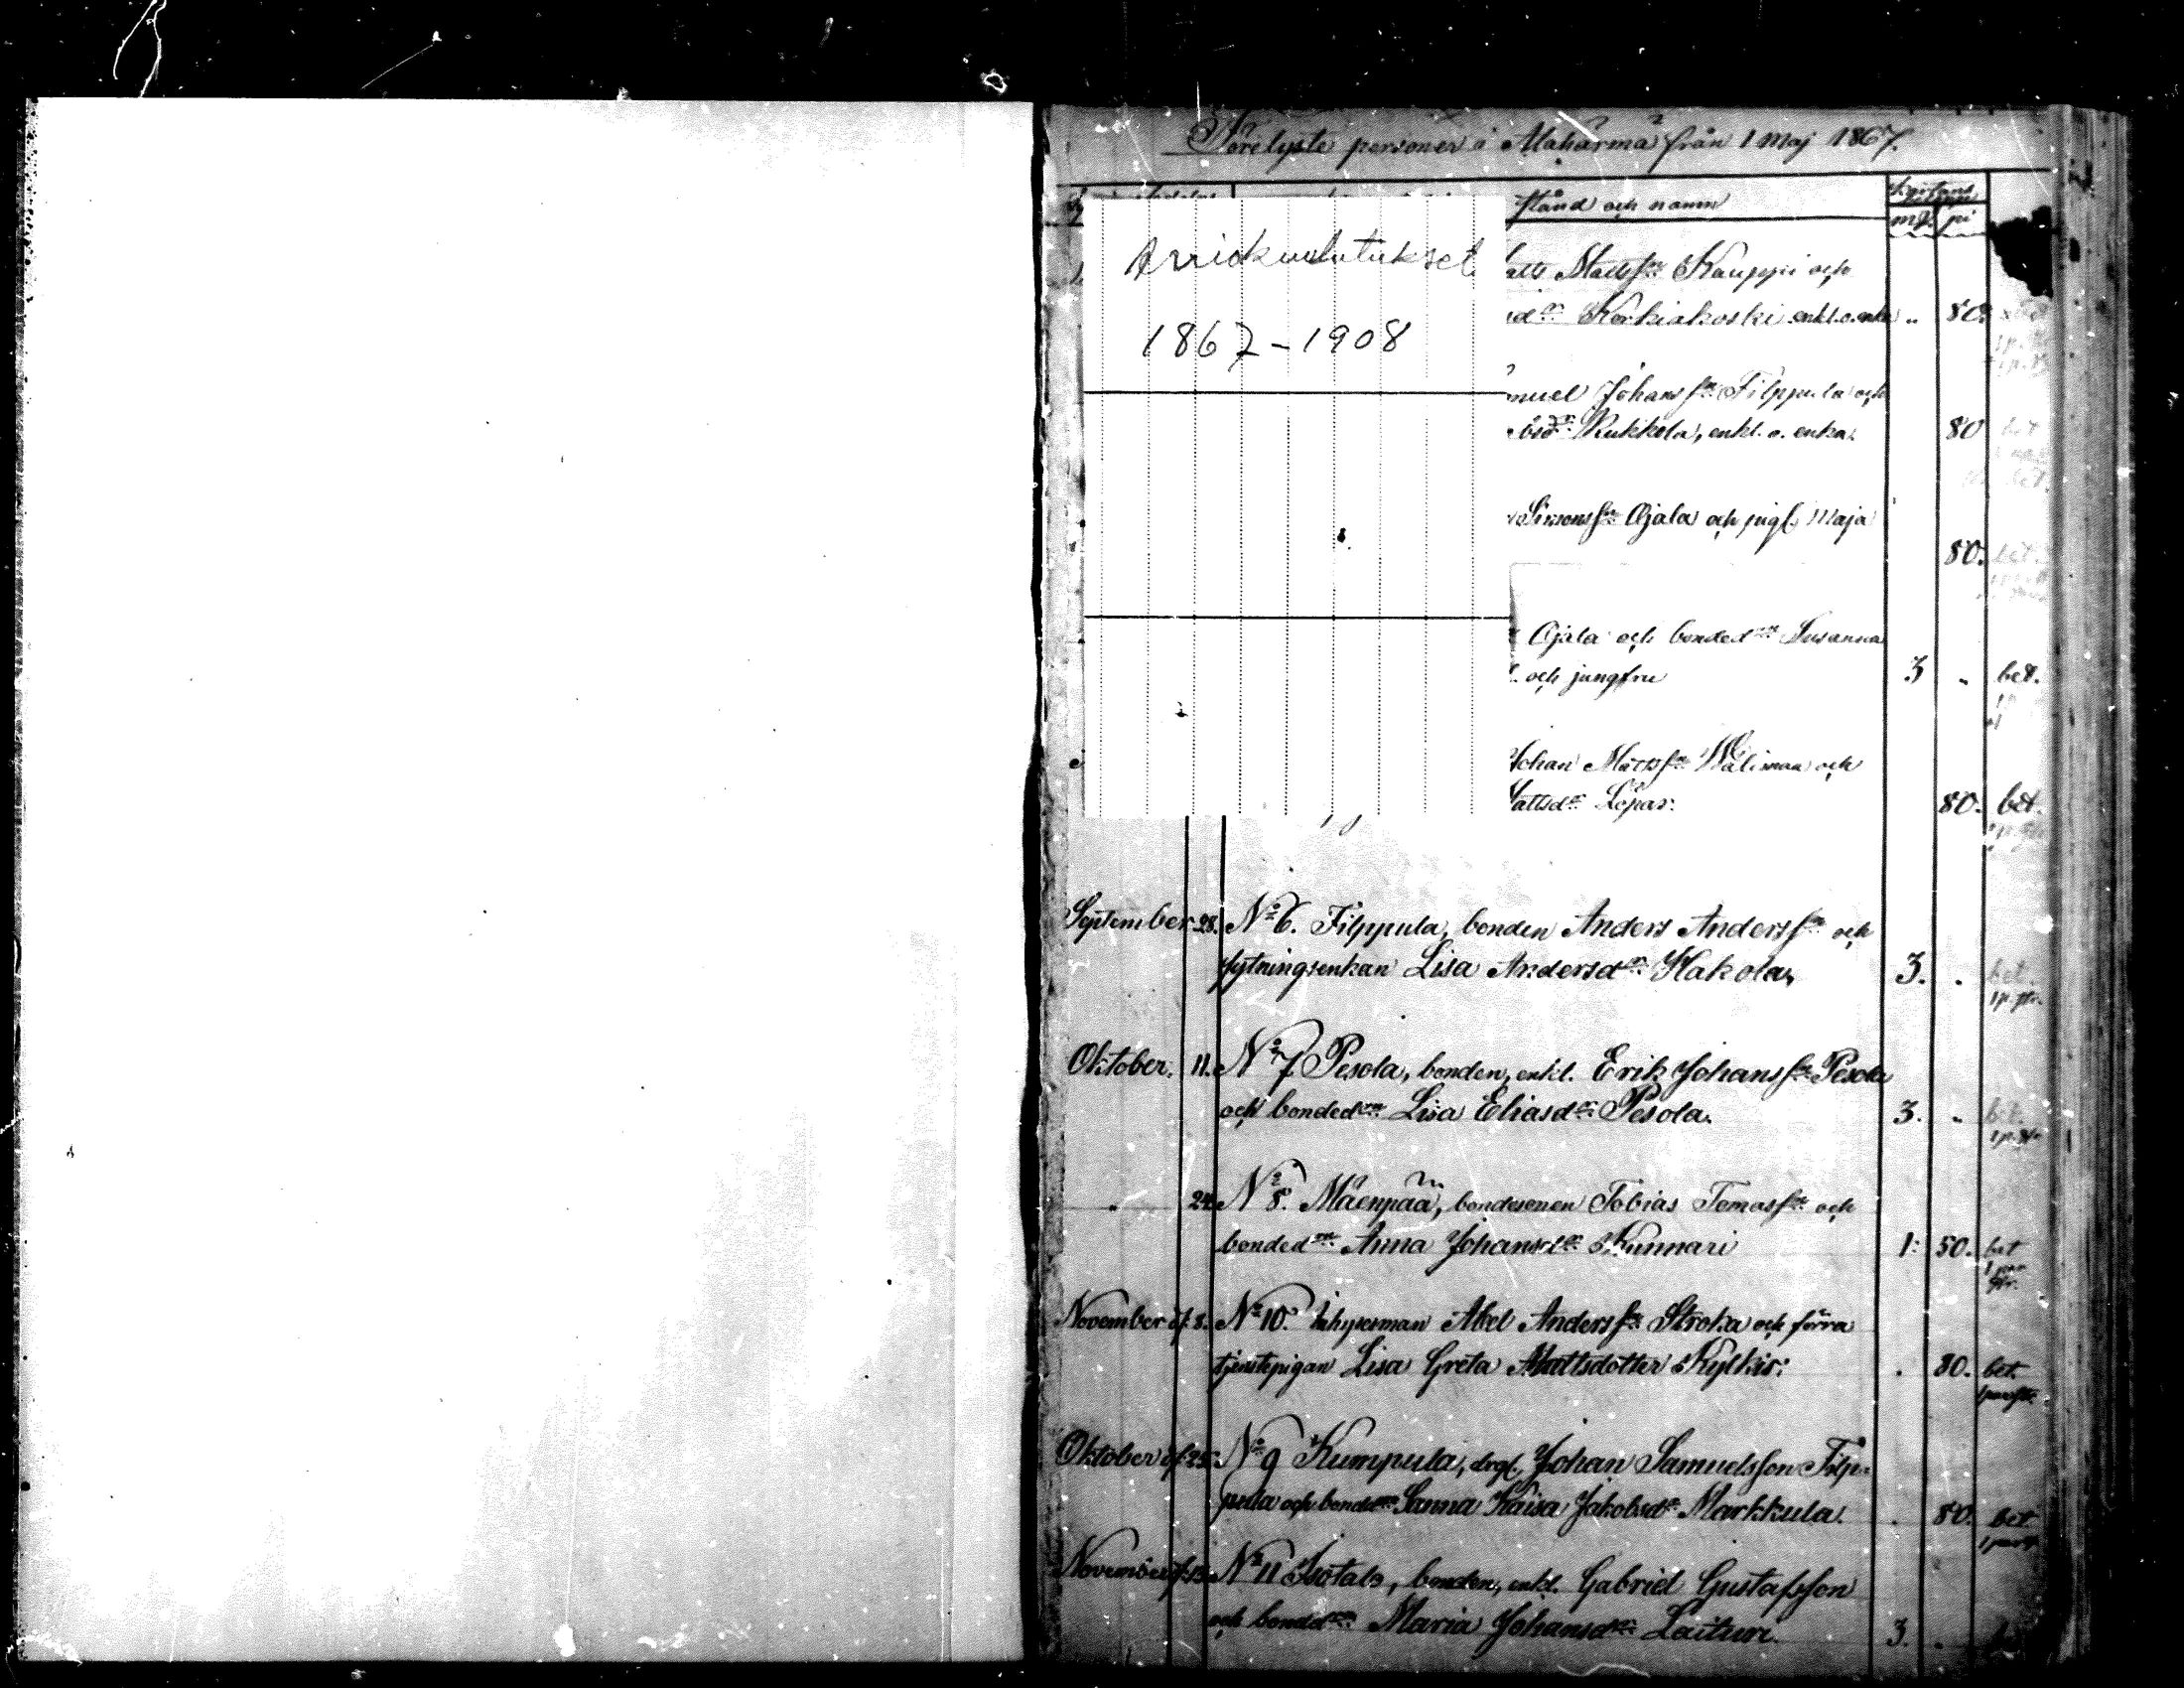 Förelyste personer i Alahärmä från 1 Maj 1867.
stånd och namn
mk pi
Aviokuulutukset
1867-1908
Matss:n Kauppi och
Korkiakoski enkl. o. enka " 80.
muel Johanss:n Filppula och
Rukkola, enkl. o. enka. 80 bet
Simonss:n Ojala och pigl. Maja
80. bet.
Ojala och bonded:n Susanna
och jungfru 3 " bet.
Johan Matss:n Wälimaa och
attsd:r Löpar. 80. bet.
September 28. No 6. Filppula, bonden Anders Anderss:n och
sytningsenkan Lisa Andersd:r Hakola, 3. . bet
Oktober. 11. No 7 Pesola, bonden, enkl. Erik Johanss:n Pesola
och bonded:n Lisa Eliasd:r Pesola. 3. " bet.
" 24. No 8. Mäenpää, bondesonen Tobias Tomass:n och
bonded:n Anna Johansd:r Kunnari 1: 50. bet
1 par
November d. 8. No 10. Inhysesman Abel Anderss:n Stroka och förra
tjenstepigan Lisa Greta Mattsdotter Kylkis: . 80. bet.
Oktober d. 25. No 9 Kumpula, drgl. Johan Samuelsson Filp-
pula och bonded:n Sanna Kaisa Jakobsd:r Markkula. . 80. bet
November d. 15. No 11 Isotalo, bonden, enkl. Gabriel Gustafsson
och bonded:n Maria Johansd:r Laituri. 3. "